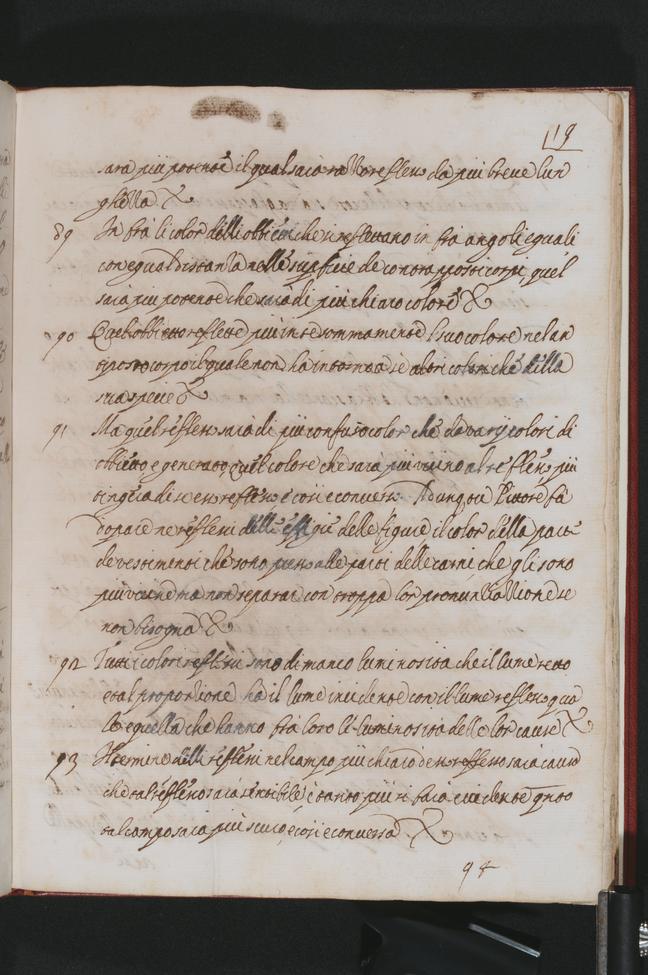 19
sara più potente il qual sara tallo reflesso da più breve lun
ghezza
89 In fra li color delli obbieti che si reflettano in fra angoli equali
con equal distantia nelle superfitie de contrapposti corpi, quel
sara più potente che sara di più chiaro colore
90 Quel obbietto reflete più intensommamente l suo colore nel an
tiposto corpo il quale non ha intorno a se altri colori che della
sua spetie
91 Ma quel reflesso sara di più confuso colore che da varij colori di
obbietto e generato, quel colore che sara più vicino al reflesso più
tingera di se esso reflesso e così e converso. Adunque Pittore fa
doperare ne reflessi delle effigie delle figure il color della parte
de vestimenti che sono presso alle parti delle carni che gli sono
più vicine ma non separare con troppa lor pronuntiatione se
non bisogna
92 Tutti colori reflessi sono di manco luminosità che il lume retto
e tal proportione ha il lume incidente con il lume reflesso qua
le e quella che hanno fra loro le luminosità delle lor cause
93 Il termine delli reflessi nel campo più chiaro d'esso reflesso sara causa
che tal reflesso sara sensibile e tanto più si fara evidente quanto
tal campo sara più scuro, e così e conversa.
94